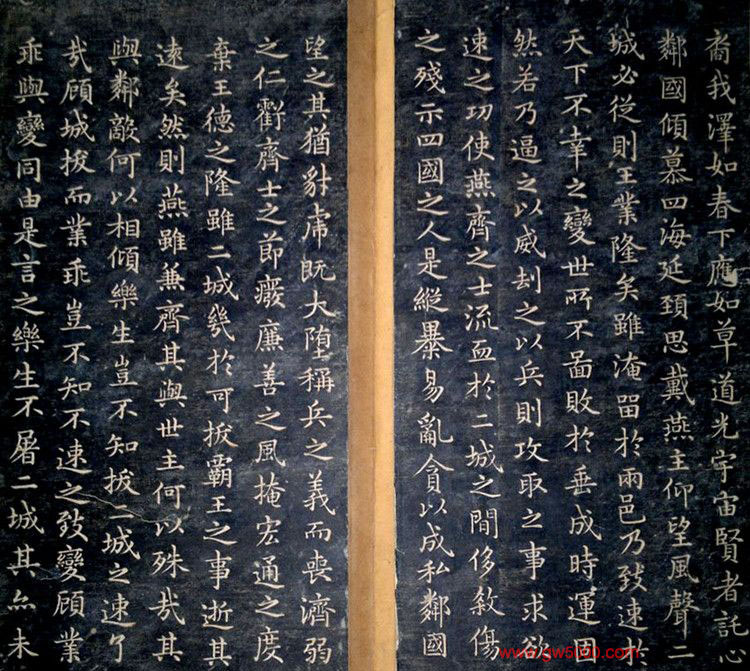 裔我澤如春下應如草道光宇宙賢者託心
鄰國傾慕四海延頸思戴燕主仰望風聲二
城必從則王業隆矣雖淹留於兩邑乃致速於
天下不幸之變世所不圖敗於垂成時運固
然若乃逼之以威劫之以兵則攻取之事求欲
速之功使燕齊之士流血於二城之間侈殺傷
之殘示四國之人是縱暴易亂貪以成私鄰國
望之其猶豺虎既大墮稱兵之義而喪濟弱
之仁虧齊士之節廢廉善之風掩宏通之度
棄王德之隆雖二城幾於可拔霸王之事逝其
遠矣然則燕雖兼齊其與世主何以殊哉其
與鄰敵何以相傾樂生豈不知拔二城之速了
哉顧城拔而業乖豈不知不速之致變顧業
乖與變同由是言之樂生不屠二城其亦未